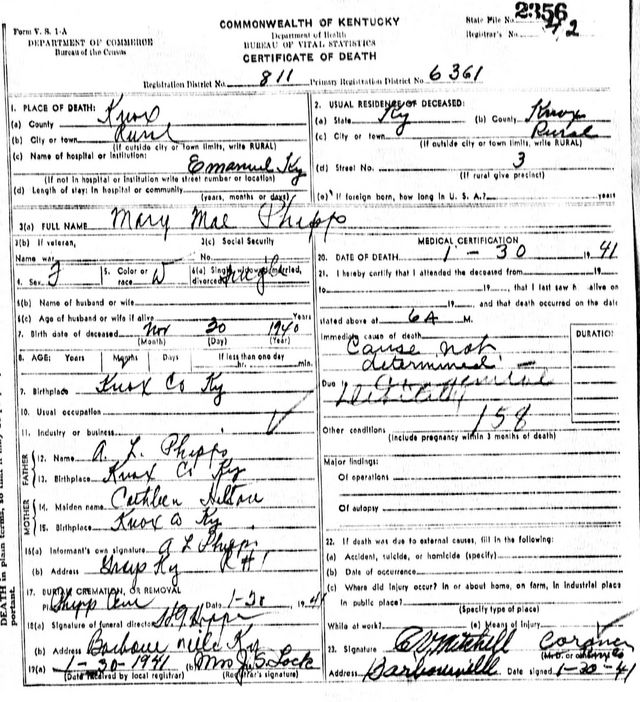 Form V. S. 1-A
DEPARTMENT OF COMMERCE
Bureau of the Census
COMMONWEALTH OF KENTUCKY
Department of Health
BUREAU OF VITAL STATISTICS
CERTIFICATE OF DEATH
State File No. 2356
Registrar's No. 42
Registration District No. 811 Primary Registration District No. 6361
1. PLACE OF DEATH:
(a) County Knox
(b) City or town Rural
(If outside city or town limits, write RURAL)
(c) Name of hospital or institution:
Emanuel Ky
(If not in hospital or institution write street number or location)
(d) Length of stay: In hospital or community
(years, months or days)
2. USUAL RESIDENCE OF DECEASED:
(a) State Ky (b) County Knox
(c) City or town Rural
(If outside city or town limits, write RURAL)
(d) Street No. 3
(If rural give precinct)
(e) If foreign born, how long in U. S. A.? years
3(a) FULL NAME Mary Mae Phipps
3(b) If veteran,
Name war
3(c) Social Security
No.
4. Sex F 5. Color or race W 6(a) Single, widowed, married, divorced Single
6(b) Name of husband or wife
6(c) Age of husband or wife if alive Years
7. Birth date of deceased Nov 30 1940
(Month) (Day) (Year)
8. AGE: Years Months Days If less than one day
hr. min.
9. Birthplace Knox Co Ky
10. Usual occupation
11. Industry or business
FATHER
12. Name A. L. Phipps
13. Birthplace Knox Co Ky
MOTHER
14. Maiden name Cathleen Helton
15. Birthplace Knox Co Ky
16(a) Informant's own signature A L Phipps
(b) Address Grays Ky R #1
17. BURIAL, CREMATION, OR REMOVAL
Phipps Cem Date 1-30 1941
18(a) Signature of funeral director
(b) Address Barbourville Ky
19(a) 1-30-1941 (b) Mrs J. S. Lock
(Date received by local registrar) (Registrar's signature)
MEDICAL CERTIFICATION
20. DATE OF DEATH 1-30 1941
21. I hereby certify that I attended the deceased from 19
to 19 , that I last saw h alive on
19 , and that death occurred on the date
stated above at 6A M.
Immediate cause of death
DURATION
Cause not
determined
Due to
158
Other conditions
(Include pregnancy within 3 months of death)
Major findings:
Of operations
Of autopsy
22. If death was due to external causes, fill in the following:
(a) Accident, suicide, or homicide (specify)
(b) Date of occurrence
(c) Where did injury occur? In or about home, on farm, in industrial place
In public place?
(Specify type of place)
While at work? (e) Means of Injury
23. Signature C D Mitchell Coroner
Address Barbourville Date signed 1-30-41
DEATH in plain terms, so that it may
portant.